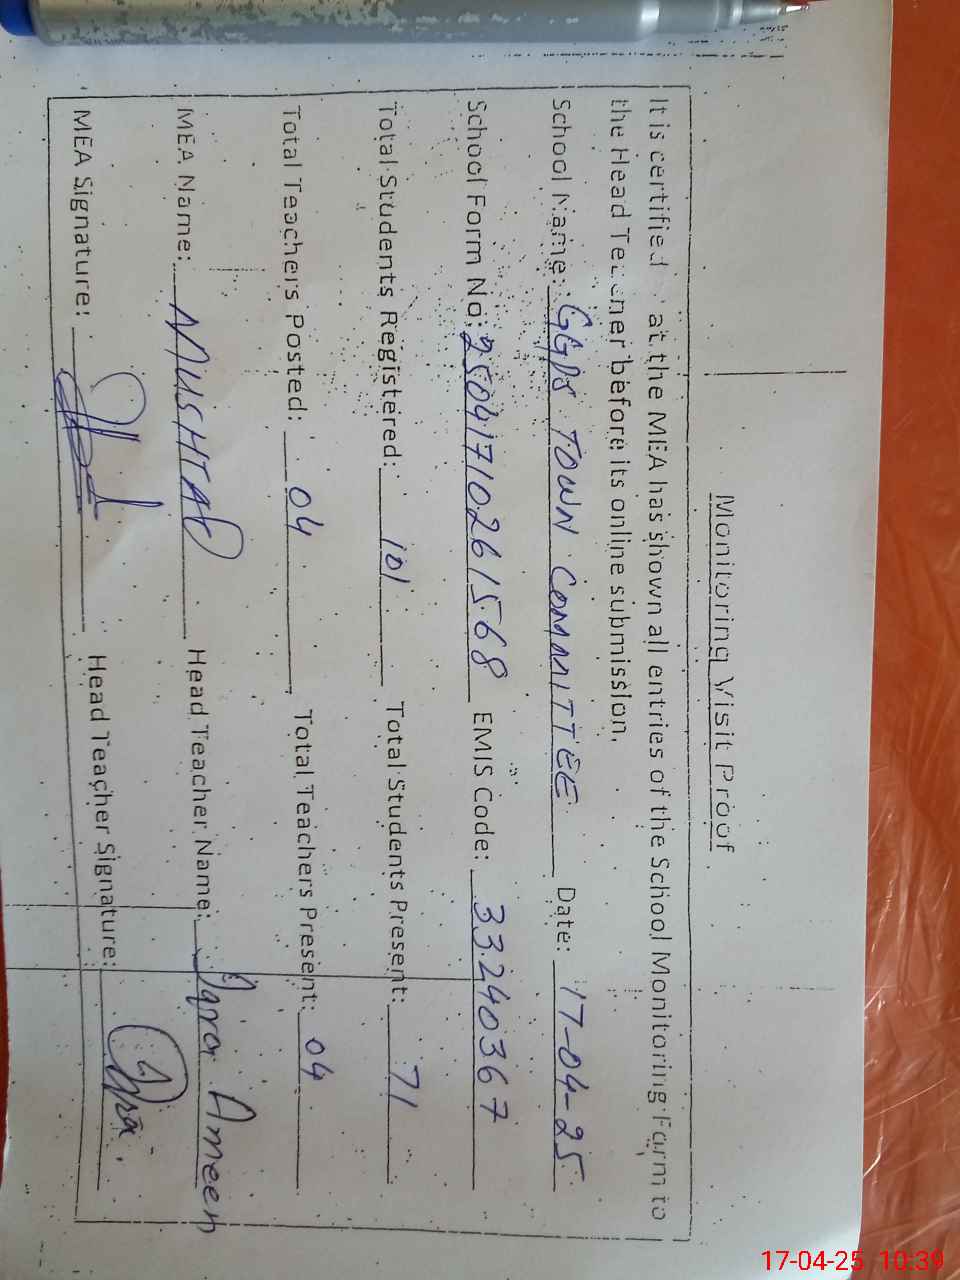 Monitoring Visit Proof
It is certified at the MEA has shown all entries of the School Monitoring Form to
the Head Teacher before its online submission.
School Name: GGPS TOWN COMMITTEE Date: 17-04-25
School Form No: 25041710261568 EMIS Code: 33240367
Total Students Registered: 101 Total Students Present: 71
Total Teachers Posted: 04 Total Teachers Present: 04
MEA Name: MUSHTAQ Head Teacher Name: Iqra Ameen
MEA Signature: Head Teacher Signature: Iqra
17-04-25 10:39